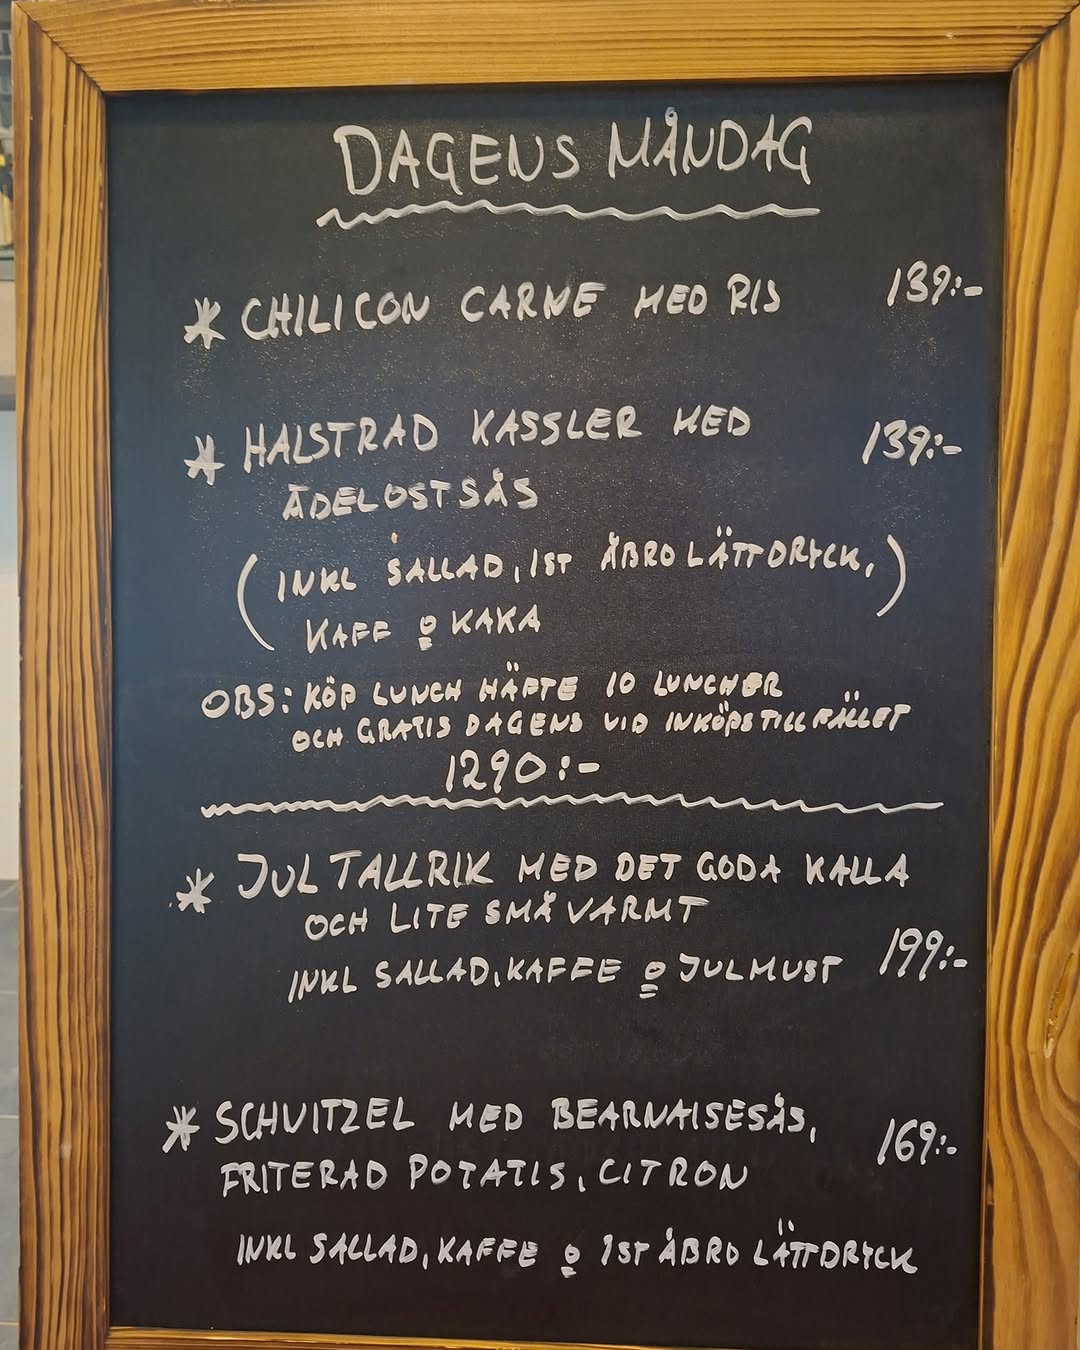 DAGENS MÅNDAG
* CHILI CON CARNE MED RIS 139:-
* HALSTRAD KASSLER MED 139:-
ÄDELOSTSÅS
(INKL SALLAD, 1ST ÅBRO LÄTTDRYCK,)
KAFF O KAKA
OBS: KÖP LUNCH HÄFTE 10 LUNCHER
OCH GRATIS DAGENS VID INKÖPSTILLFÄLLET
1290:-
* JULTALLRIK MED DET GODA KALLA
OCH LITE SMÅVARMT
INKL SALLAD, KAFFE O JULMUST 199:-
* SCHNITZEL MED BEARNAISESÅS, 169:-
FRITERAD POTATIS, CITRON
INKL SALLAD, KAFFE O 1ST ÅBRO LÄTTDRYCK